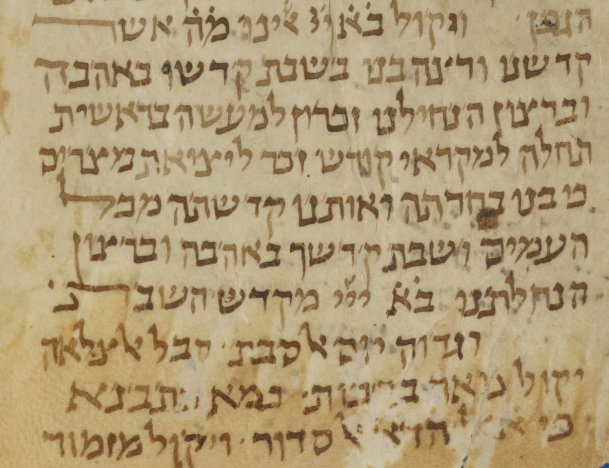 הגפן ויקול בא ייי אינו מה אשר
קדשנו ורצה בנו בשבת קדשו באהבה
וברצון הנחילנו זכרון למעשה בראשית
תחלה למקראי קודש זכר ליציאת מצרים
כי בנו בחרתה ואותנו קדשתה מכל
העמים ושבת קדשך באהבה וברצון
הנחלתנו בא ייי מקדש השבת
וגדוה יום אלסבת קבל אלצלאה
יקול מאה ברכות כמא תבינא
אלסדור ויקול מזמור